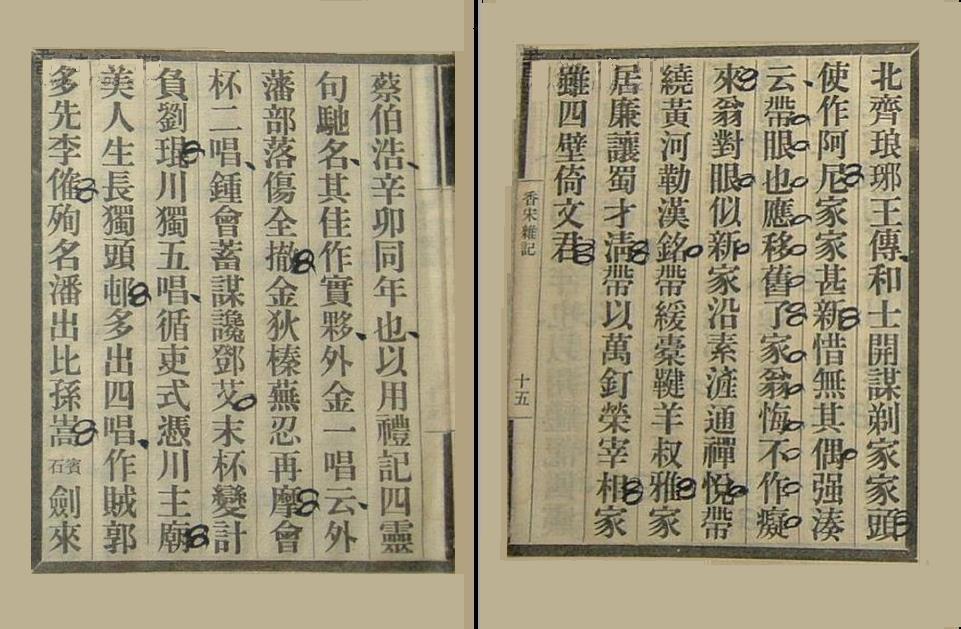 北齊琅琊王傳和士開謀剃家家頭
使作阿尼家家甚新惜無其偶强湊
云帶眼也應移舊了家翁悔不作癡
來翁對眼似新家沿素滻通禪悅帶
繞黃河勒漢銘帶緩櫜鞬羊叔雅家
居廉讓蜀才淸帶以萬釘榮宰相家
雖四壁倚文君
香宋雜記
十五
蔡伯浩辛卯同年也以用禮記四靈
句馳名其佳作實夥外金一唱云外
藩部落傷全撤金狄榛蕪忍再摩會
杯二唱鍾會蓄謀讒鄧艾末杯變計
負劉琨川獨五唱循吏式憑川主廟
美人生長獨頭邨多出四唱作賊郭
多先李傕殉名潘出比孫嵩賓石劍來